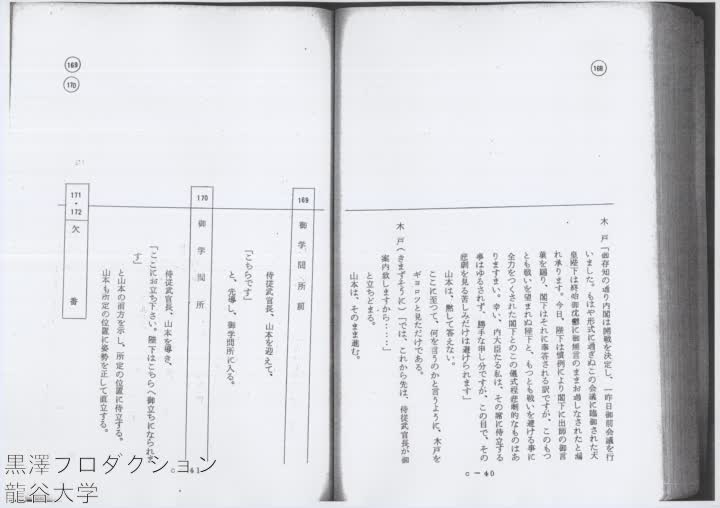 168
木戸「御存知の通り内閣は開戦を決定し、一昨日御前会議を行
いました。もはや形式に過ぎぬこの会議に臨御された天
皇陛下は終始御沈鬱に御無言のままお過しなされたと漏
れ承ります。今日、陛下は慣例により閣下に出師の御言
葉を賜り、閣下はそれに奉答される訳ですが、このもつ
とも戦いを望まれぬ陛下と、もつとも戦いを避ける事に
全力をつくされた閣下とのこの儀式程悲劇的なものはあ
りますまい。幸い、内大臣たる私は、その席に侍立する
事はゆるされず、勝手な申し分ですが、この目で、その
悲劇を見る苦しみだけは避けられます」
山本は、黙して答えない。
ここに至つて、何を言うのかと言うように、木戸を
ギヨロツと見ただけである。
木戸(きまずそうに)「では、これから先は、侍従武官長が御
案内致しますから……」
と立ちどまる。
山本は、そのまま進む。
c-40
169
170
169
御学問所前
侍従武官長、山本を迎えて、
「こちらです」
と、先導し、御学問所に入る。
170
御学問所
侍従武官長、山本を導き、
「ここにお立ち下さい。陛下はこちらへ御立ちになられま
す」
と山本の前方を示し、所定の位置に侍立する。
山本も所定の位置に姿勢を正して直立する。
171・172
欠番
黒澤プロダクション
龍谷大学